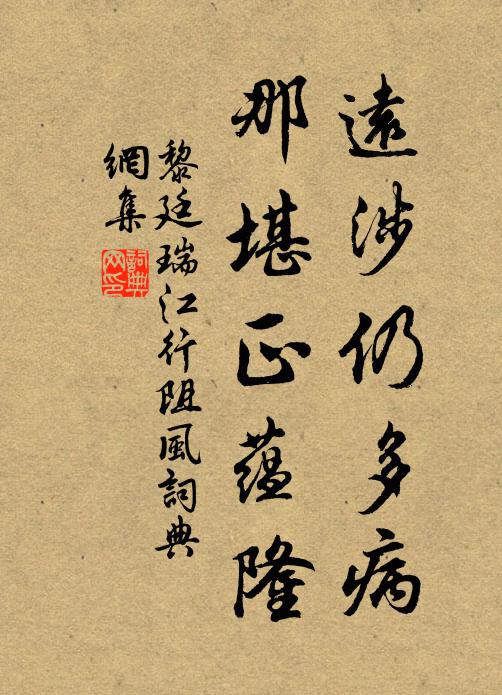 遠涉仍多病
那堪正蘊隆
黎廷瑞江行阻風詞典
網集
詞典網印